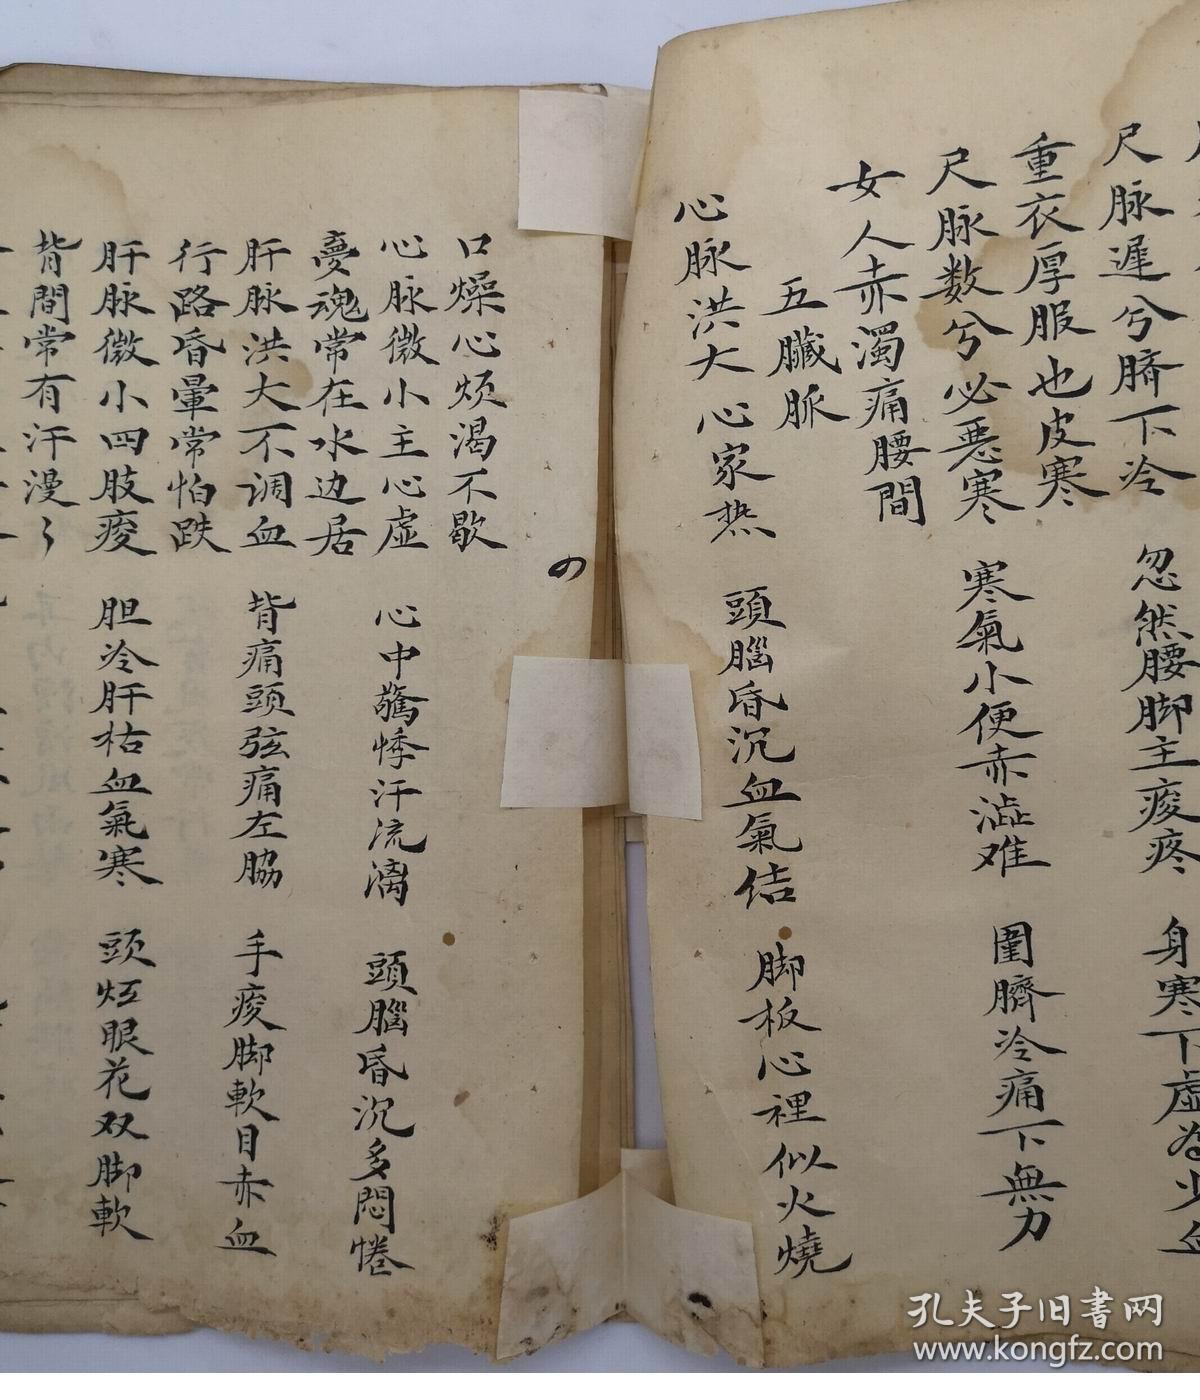 尺脉遲兮臍下冷 忽然腰脚主痠疼 身寒下虚為少血
重衣厚服也皮寒
尺脉数兮必惡寒 寒氣小便赤澁难 圍臍冷痛下無力
女人赤濁痛腰間
五臟脈
心脉洪大心家热 頭腦昏沉血氣结 脚板心裡似火燒
口燥心烦渴不歇
心脉微小主心虚 心中驚悸汗流漓 頭腦昏沉多悶惓
夣魂常在水边居
肝脉洪大不调血 背痛頭弦痛左脇 手痠脚軟目赤血
行路昏暈常怕跌
肝脉微小四肢痠 胆冷肝枯血氣寒 頭眼花双脚軟
背間常有汗漫〻
孔夫子旧書网
www.kongfz.com